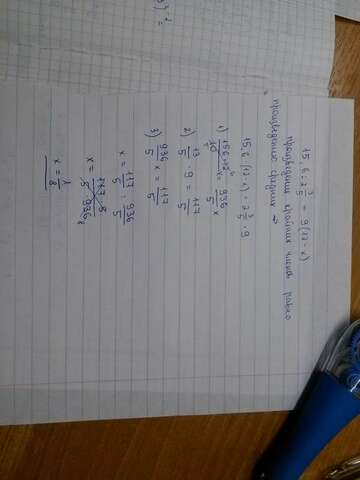 15,6 : 2 3/5 = 9 : (12 · x)
произведение крайних членов равно
произведению средних ⇒
15,6 · (12 · x) = 2 3/5 · 9
1) 156/10 · 12 · x = 936/5 x
2) 13/5 · 9 = 117/5
3) 936/5 x = 117/5
x = 117/5 : 936/5
x = 117 · 5 / 5 · 936
x = 1/8